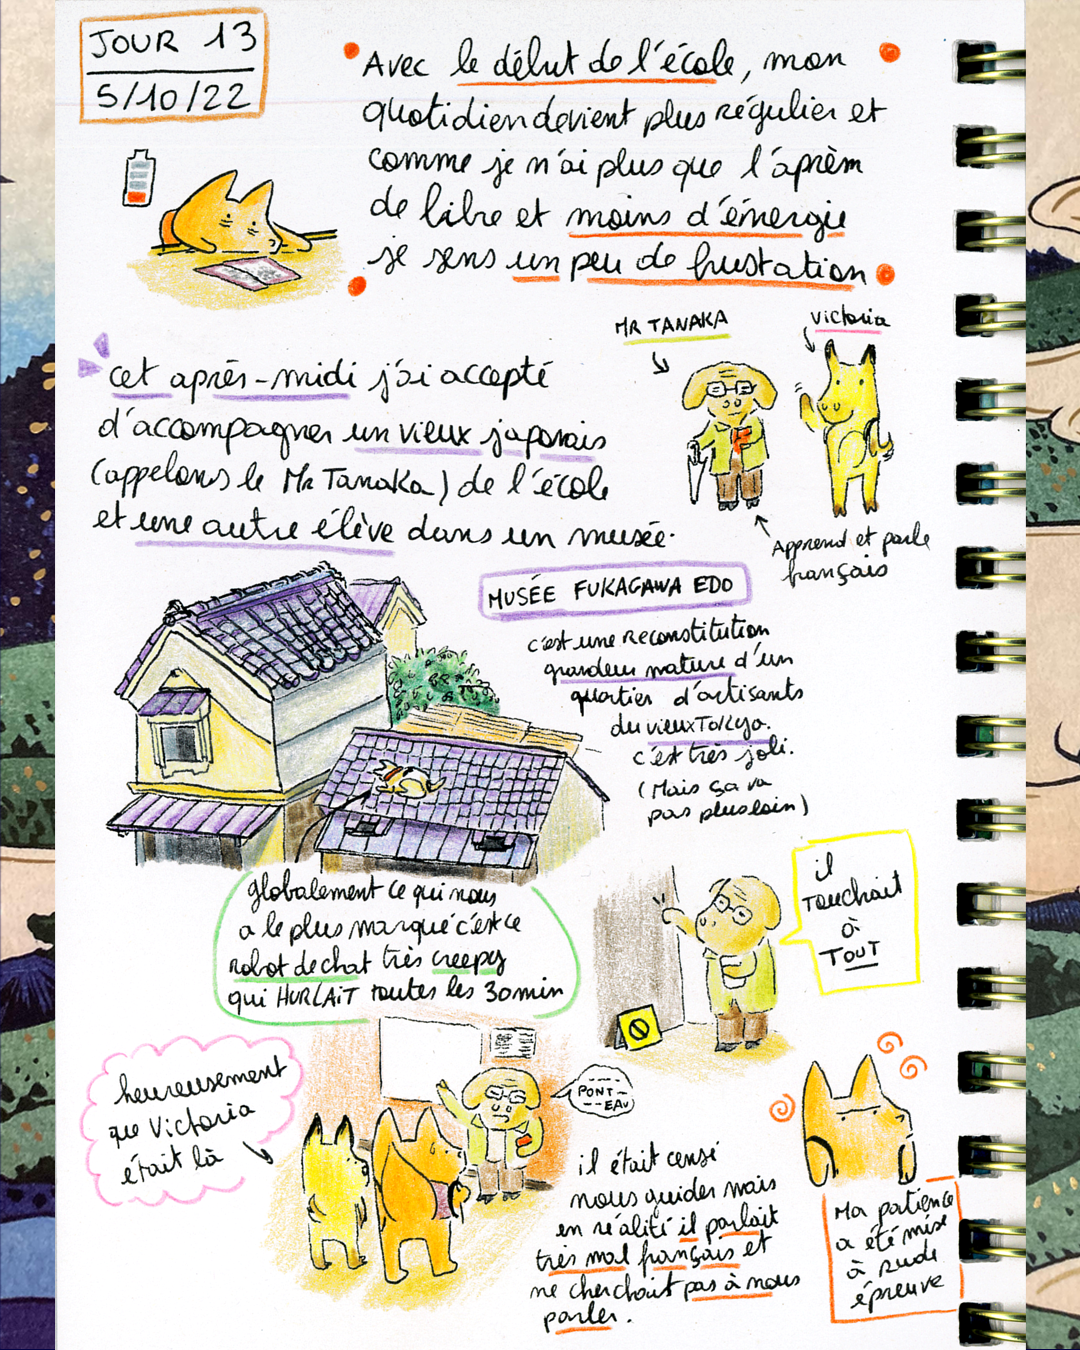 JOUR 13
5/10/22
Avec le début de l'école, mon
quotidien devient plus régulier et
comme je n'ai plus que l'aprèm
de libre et moins d'énergie
je sens un peu de frustation
MR TANAKA
Victoria
cet après-midi j'ai accepté
d'accompagner un vieux japonais
(appelons le Mr Tanaka) de l'école
et une autre élève dans un musée.
Apprend et parle
français
MUSÉE FUKAGAWA EDO
c'est une reconstitution
grandeur nature d'un
quartier d'artisants
du vieux Tokyo.
c'est très joli.
(Mais ça va
pas plus loin)
il
Touchait
à
TOUT
globalement ce qui nous
a le plus marqué c'est le
robot de chat très creepy
qui HURLAIT toutes les 30 min
heureusement
que Victoria
était là
PONT-
--EAU
il était censé
nous guider mais
en réalité il parlait
très mal français et
ne cherchait pas à nous
parler.
Ma patience
a été mise
à rude
épreuve